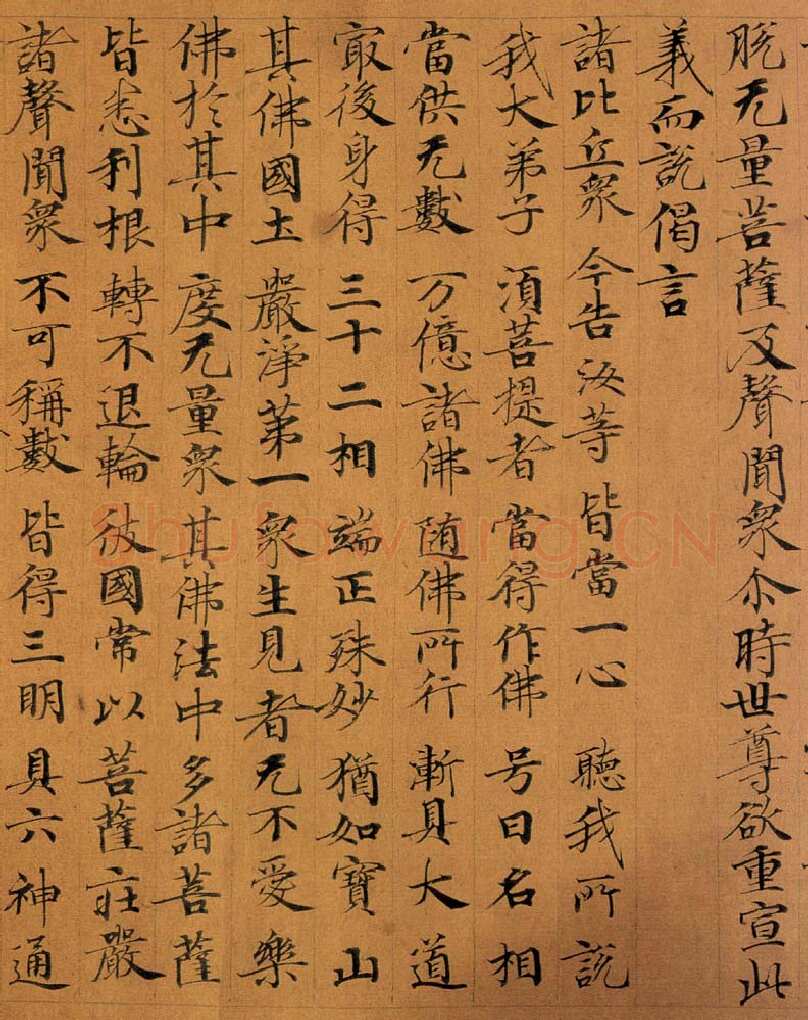 脫无量菩薩及聲聞眾尒時世尊欲重宣此
義而說偈言
諸比丘眾 今告汝等 皆當一心 聽我所說
我大弟子 須菩提者 當得作佛 号曰名相
當供无數 万億諸佛 随佛所行 漸具大道
冣後身得 三十二相 端正殊妙 猶如寶山
其佛國土 嚴淨第一 眾生見者 无不愛樂
佛於其中 度无量眾 其佛法中 多諸菩薩
皆悉利根 轉不退輪 彼國常以 菩薩莊嚴
諸聲聞眾 不可稱數 皆得三明 具六神通
shufawang.CN